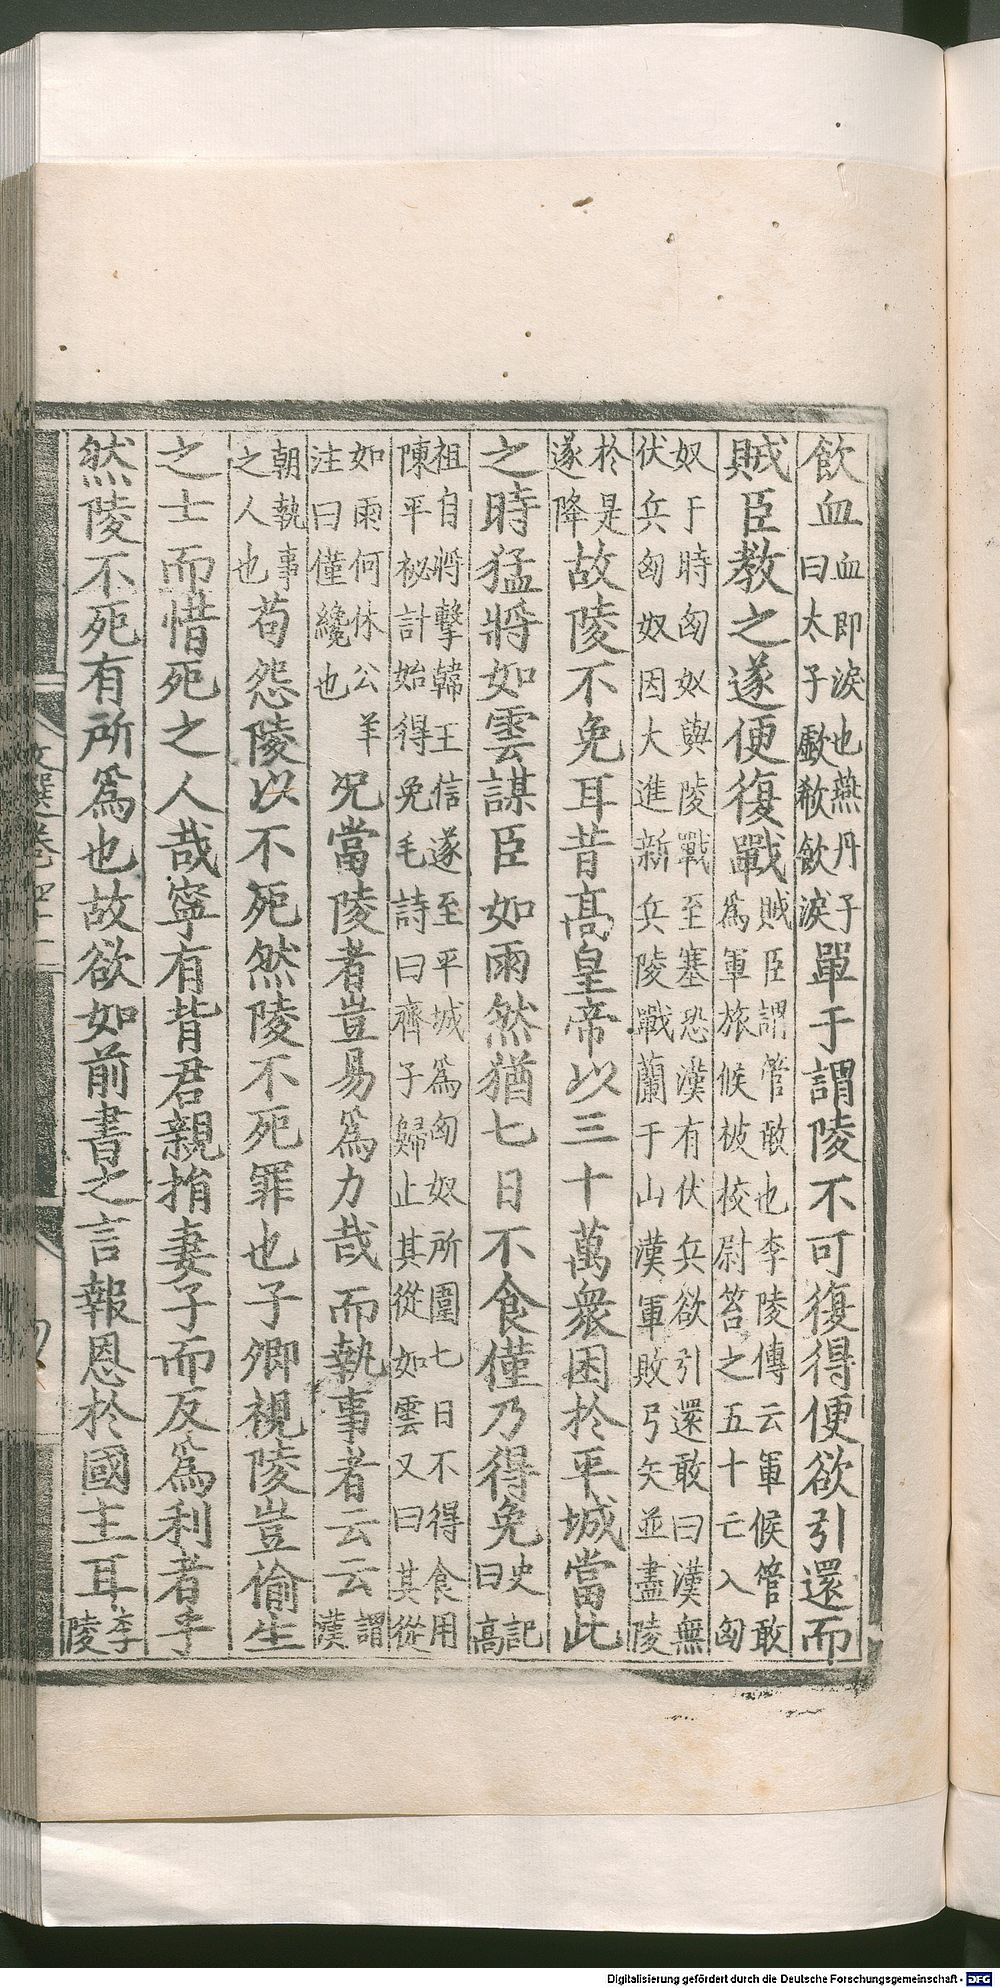 飲血血即淚也燕丹子曰太子歔欷飲淚單于謂陵不可復得便欲引還而
賊臣教之遂便復戰賊臣謂管敢也李陵傳云軍候管敢爲軍旅候被校尉笞之五十亡入匈
奴于時匈奴與陵戰至塞恐漢有伏兵欲引還敢曰漢無伏兵匈奴因大進新兵陵戰蘭于山漢軍敗弓矢並盡陵
於是遂降故陵不免耳昔高皇帝以三十萬衆困於平城當此
之時猛將如雲謀臣如雨然猶七日不食僅乃得免史記曰高
祖自將擊韓王信遂至平城爲匈奴所圍七日不得食用陳平祕計始得免毛詩曰齊子歸止其從如雲又曰其從
如雨何休公羊注曰僅纔也況當陵者豈易爲力哉而執事者云云謂漢
朝執事之人也苟怨陵以不死然陵不死罪也子卿視陵豈偷生
之士而惜死之人哉寧有背君親捐妻子而反爲利者乎
然陵不死有所爲也故欲如前書之言報恩於國主耳李陵
文選卷四十一
Digitalisierung gefördert durch die Deutsche Forschungsgemeinschaft - DFG